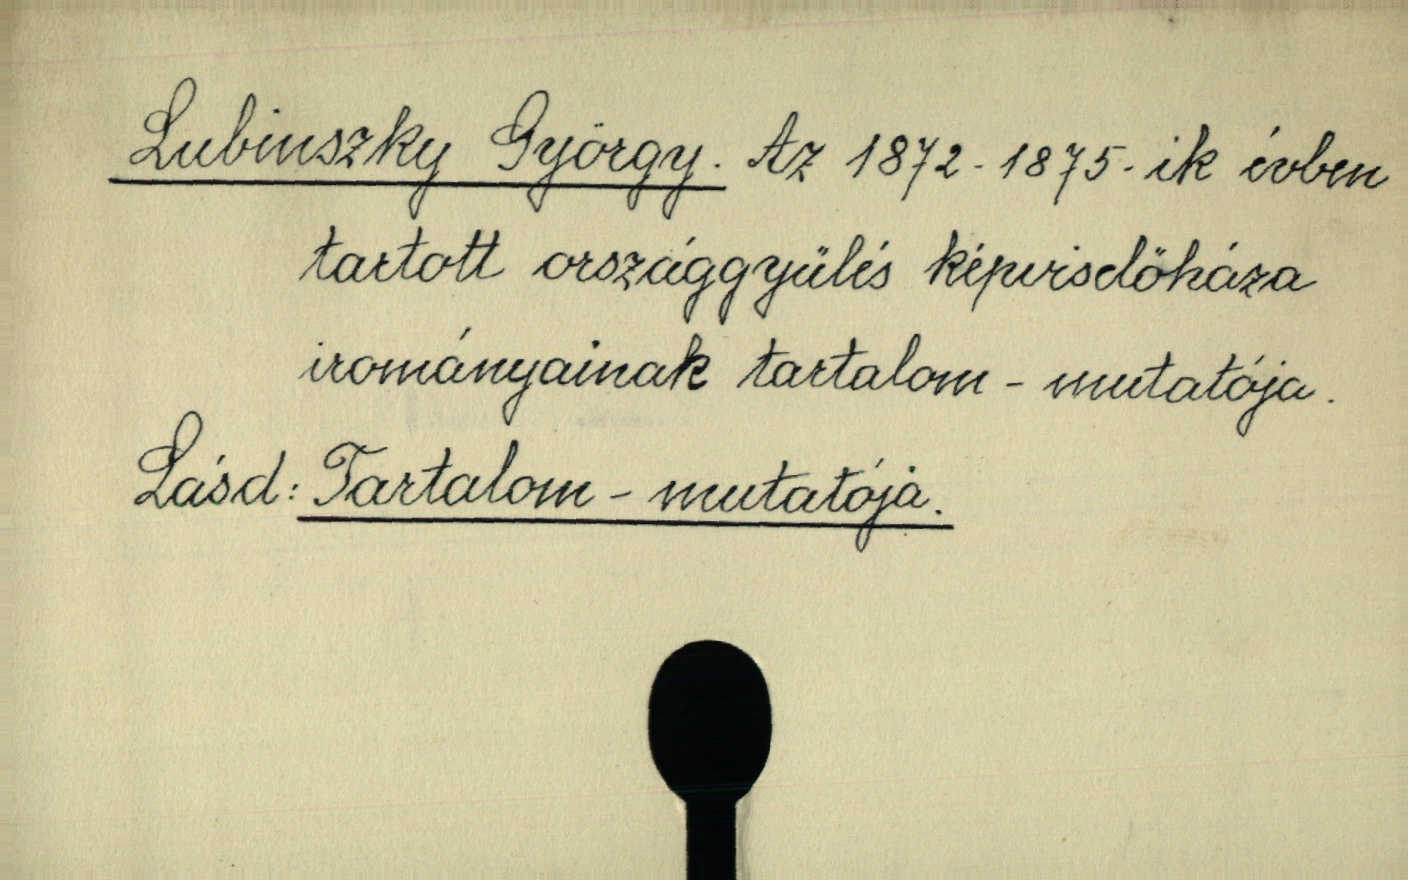 Lubinszky György. Az 1872-1875-ik évben
tartott országgyülés képviselőháza
irományainak tartalom-mutatója.
Lásd: Tartalom-mutatója.